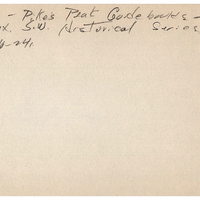 - Pikes Peak Guidebooks -
S.W. Historical Series,
-241